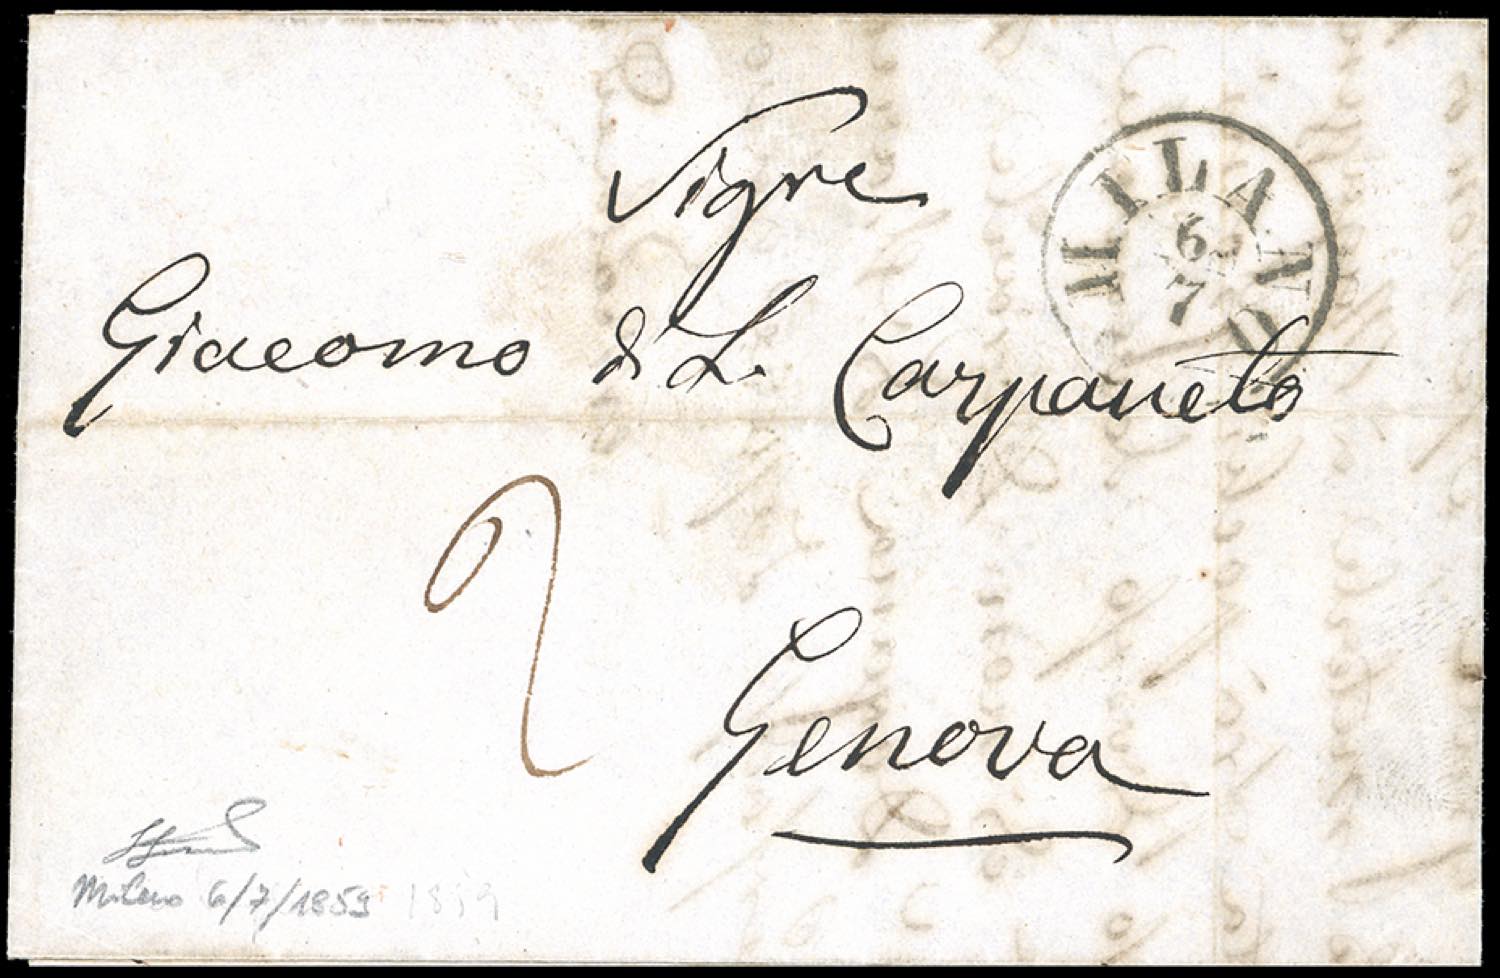 Sigre
MILANO
6
7
Giacomo di L. Carpaneto
2
Genova
Milano 6/7/1859 1859